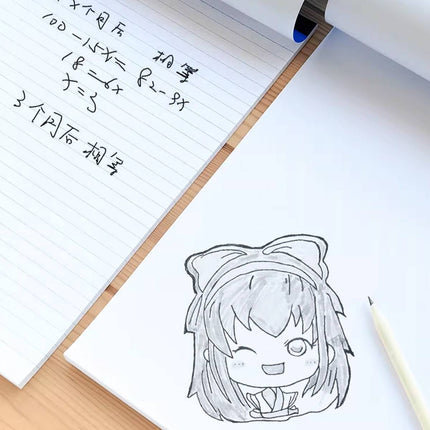 x个月后 相等
100-15x=82-9x
18=6x
x=3
3个月后相等